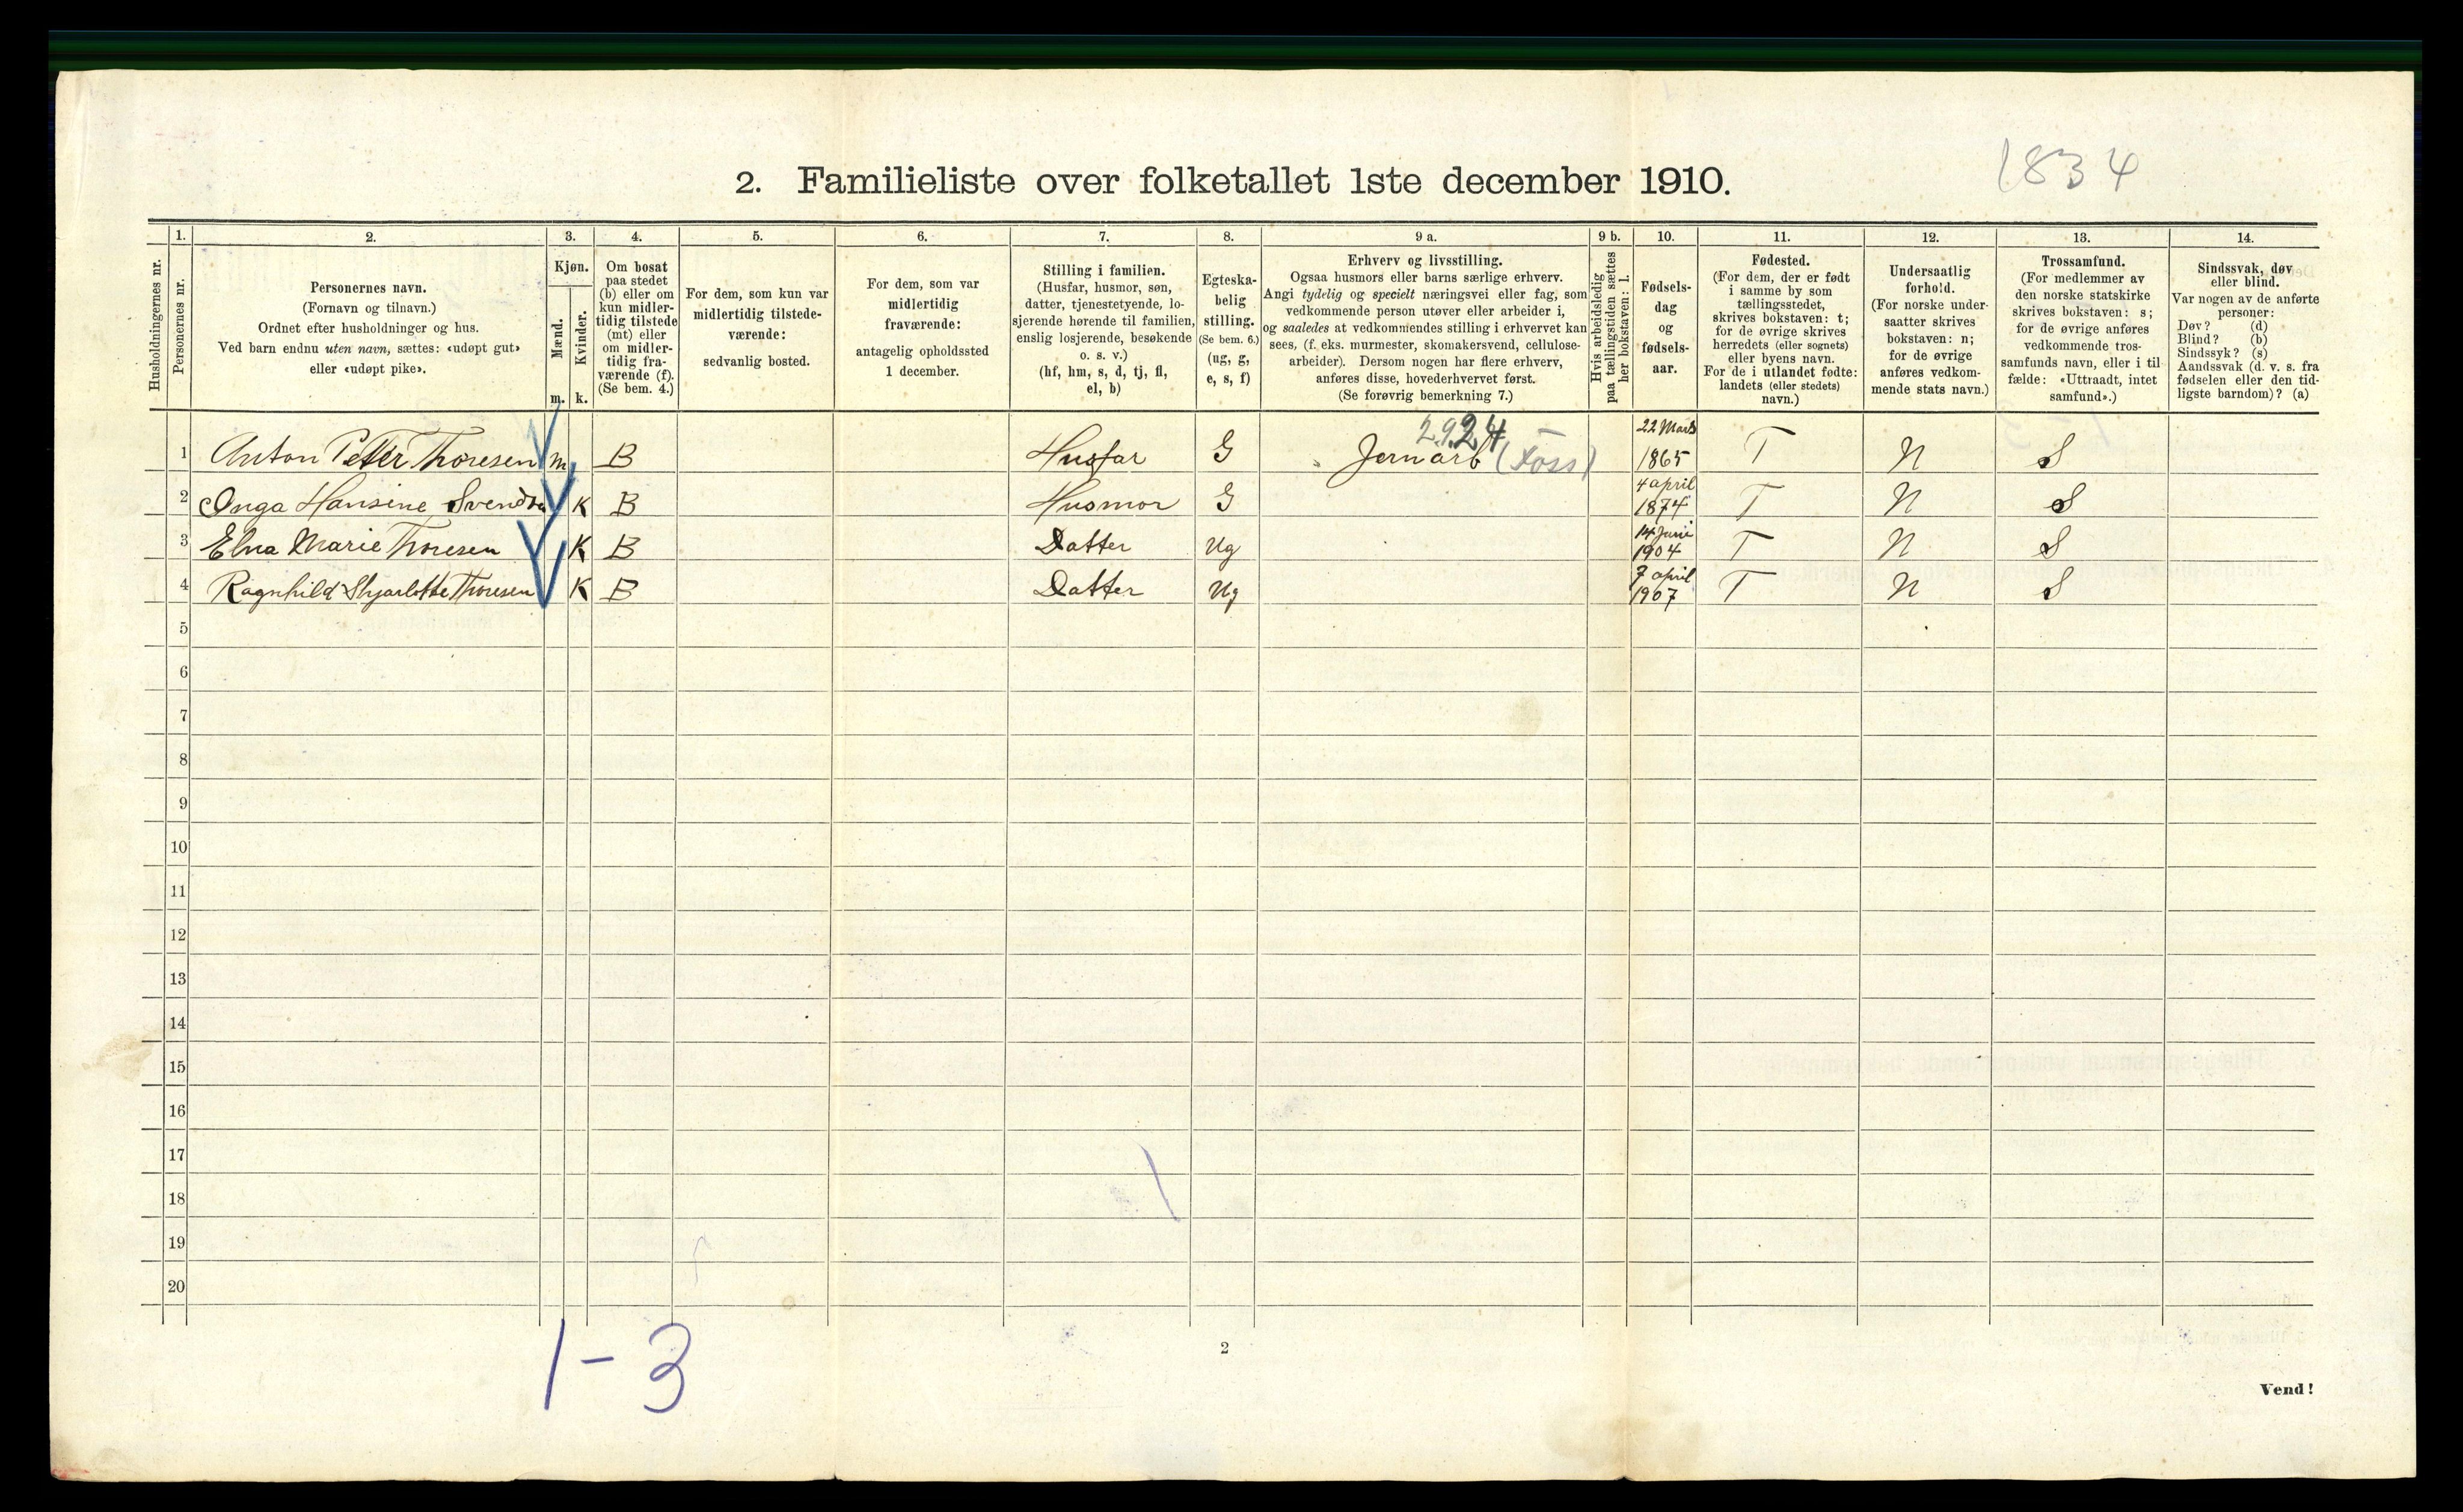 1834
2. Familieliste over folketallet 1ste december 1910.
1. 2. 3. 4. 5. 6. 7. 8. 9 a. 9 b. 10. 11. 12. 13. 14.
Husholdningernes nr.
Personernes nr.
Personernes navn.
(Fornavn og tilnavn.)
Ordnet efter husholdninger og hus.
Ved barn endnu uten navn, sættes: «udøpt gut»
eller «udøpt pike».
Kjøn.
Mænd.
Kvinder.
m. k.
Om bosat
paa stedet
(b) eller om
kun midler-
tidig tilstede
(mt) eller
om midler-
tidig fra-
værende (f).
(Se bem. 4.)
For dem, som kun var
midlertidig tilstede-
værende:
sedvanlig bosted.
For dem, som var
midlertidig
fraværende:
antagelig opholdssted
1 december.
Stilling i familien.
(Husfar, husmor, søn,
datter, tjenestetyende, lo-
sjerende hørende til familien,
enslig losjerende, besøkende
o. s. v.)
(hf, hm, s, d, tj, fl,
el, b)
Egteska-
belig
stilling.
(Se bem. 6.)
(ug, g,
e, s, f)
Erhverv og livsstilling.
Ogsaa husmors eller barns særlige erhverv.
Angi tydelig og specielt næringsvei eller fag, som
vedkommende person utøver eller arbeider i,
og saaledes at vedkommendes stilling i erhvervet kan
sees, (f. eks. murmester, skomakersvend, cellulose-
arbeider). Dersom nogen har flere erhverv,
anføres disse, hovederhvervet først.
(Se forøvrig bemerkning 7.)
Hvis arbeidsledig
paa tællingstiden sættes
her bokstaven: l.
Fødsels-
dag
og
fødsels-
aar.
Fødested.
(For dem, der er født
i samme by som
tællingsstedet,
skrives bokstaven: t;
for de øvrige skrives
herredets (eller sognets)
eller byens navn.
For de i utlandet fødte:
landets (eller stedets)
navn.)
Undersaatlig
forhold.
(For norske under-
saatter skrives
bokstaven: n;
for de øvrige
anføres vedkom-
mende stats navn.)
Trossamfund.
(For medlemmer av
den norske statskirke
skrives bokstaven: s;
for de øvrige anføres
vedkommende tros-
samfunds navn, eller i til-
fælde: «Uttraadt, intet
samfund».)
Sindssvak, døv
eller blind.
Var nogen av de anførte
personer:
Døv? (d)
Blind? (b)
Sindssyk? (s)
Aandssvak (d. v. s. fra
fødselen eller den tid-
ligste barndom)? (a)
2924
1 Anton Petter Thoresen m B Husfar G Jernarb (Foss) 22 Mars 1865 T N S
2 Inga Hansine Svendsen K B Husmor G 4 april 1874 T N S
3 Elna Marie Thoresen K B Datter Ug 14 Juni 1904 T N S
4 Ragnhild Shjarlotte Thoresen K B Datter Ug 7 april 1907 T N S
5
6
7
8
9
10
11
12
13
14
15
16
17
18
19
20
1-3
2
Vend!